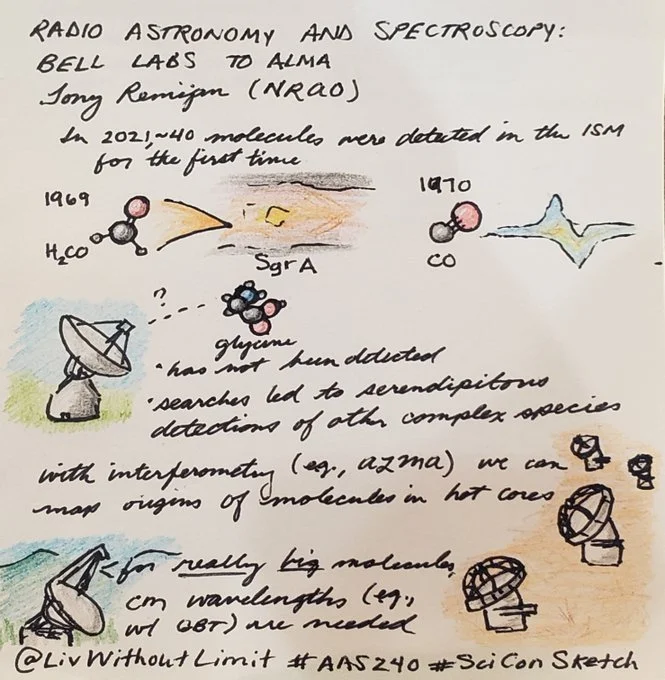 RADIO ASTRONOMY AND SPECTROSCOPY:
BELL LABS TO ALMA
Tony Remijan (NRAO)
In 2021, ~40 molecules were detected in the ISM
for the first time
1969
1970
H2CO
Sgr A
CO
?
glycine
• has not been detected
• searches led to serendipitous
detections of other complex species
with interferometry (eg., ALMA) we can
map origins of molecules in hot cores
for really big molecules,
cm wavelengths (eg.,
w/ GBT) are needed
@LivWithoutLimit #AAS240 #SciConSketch